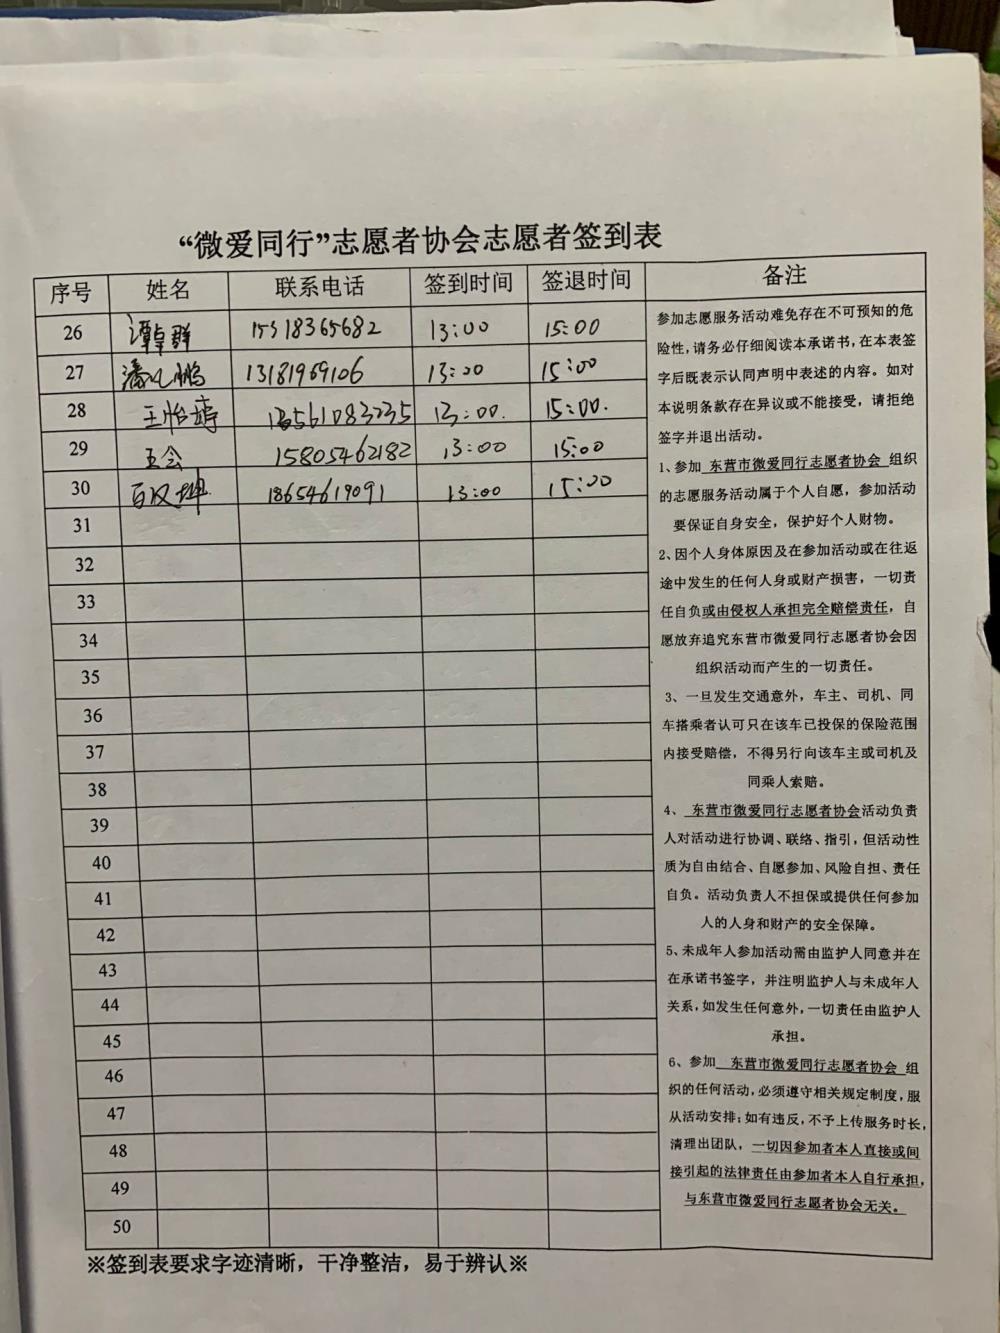 “微爱同行”志愿者协会志愿者签到表
序号 姓名 联系电话 签到时间 签退时间 备注
26 谭卓群 15318365682 13:00 15:00
27 潘 鹏 13181969106 13:00 15:00
28 王怡 13561083235 13:00. 15:00.
29 王会 15805462182 13:00 15:00
30 18654619091 13:00 15:00
31
32
33
34
35
36
37
38
39
40
41
42
43
44
45
46
47
48
49
50
参加志愿服务活动难免存在不可预知的危
险性,请务必仔细阅读本承诺书,在本表签
字后既表示认同声明中表述的内容。如对
本说明条款存在异议或不能接受,请拒绝
签字并退出活动。
1、参加 东营市微爱同行志愿者协会 组织
的志愿服务活动属于个人自愿,参加活动
要保证自身安全,保护好个人财物。
2、因个人身体原因及在参加活动或在往返
途中发生的任何人身或财产损害,一切责
任自负或由侵权人承担完全赔偿责任,自
愿放弃追究东营市微爱同行志愿者协会因
组织活动而产生的一切责任。
3、一旦发生交通意外,车主、司机、同
车搭乘者认可只在该车已投保的保险范围
内接受赔偿,不得另行向该车主或司机及
同乘人索赔。
4、 东营市微爱同行志愿者协会活动负责
人对活动进行协调、联络、指引,但活动性
质为自由结合、自愿参加、风险自担、责任
自负。活动负责人不担保或提供任何参加
人的人身和财产的安全保障。
5、未成年人参加活动需由监护人同意并在
在承诺书签字,并注明监护人与未成年人
关系,如发生任何意外,一切责任由监护人
承担。
6、参加 东营市微爱同行志愿者协会 组
织的任何活动,必须遵守相关规定制度,服
从活动安排;如有违反,不予上传服务时长,
清理出团队,一切因参加者本人直接或间
接引起的法律责任由参加者本人自行承担,
与东营市微爱同行志愿者协会无关。
※签到表要求字迹清晰,干净整洁,易于辨认※